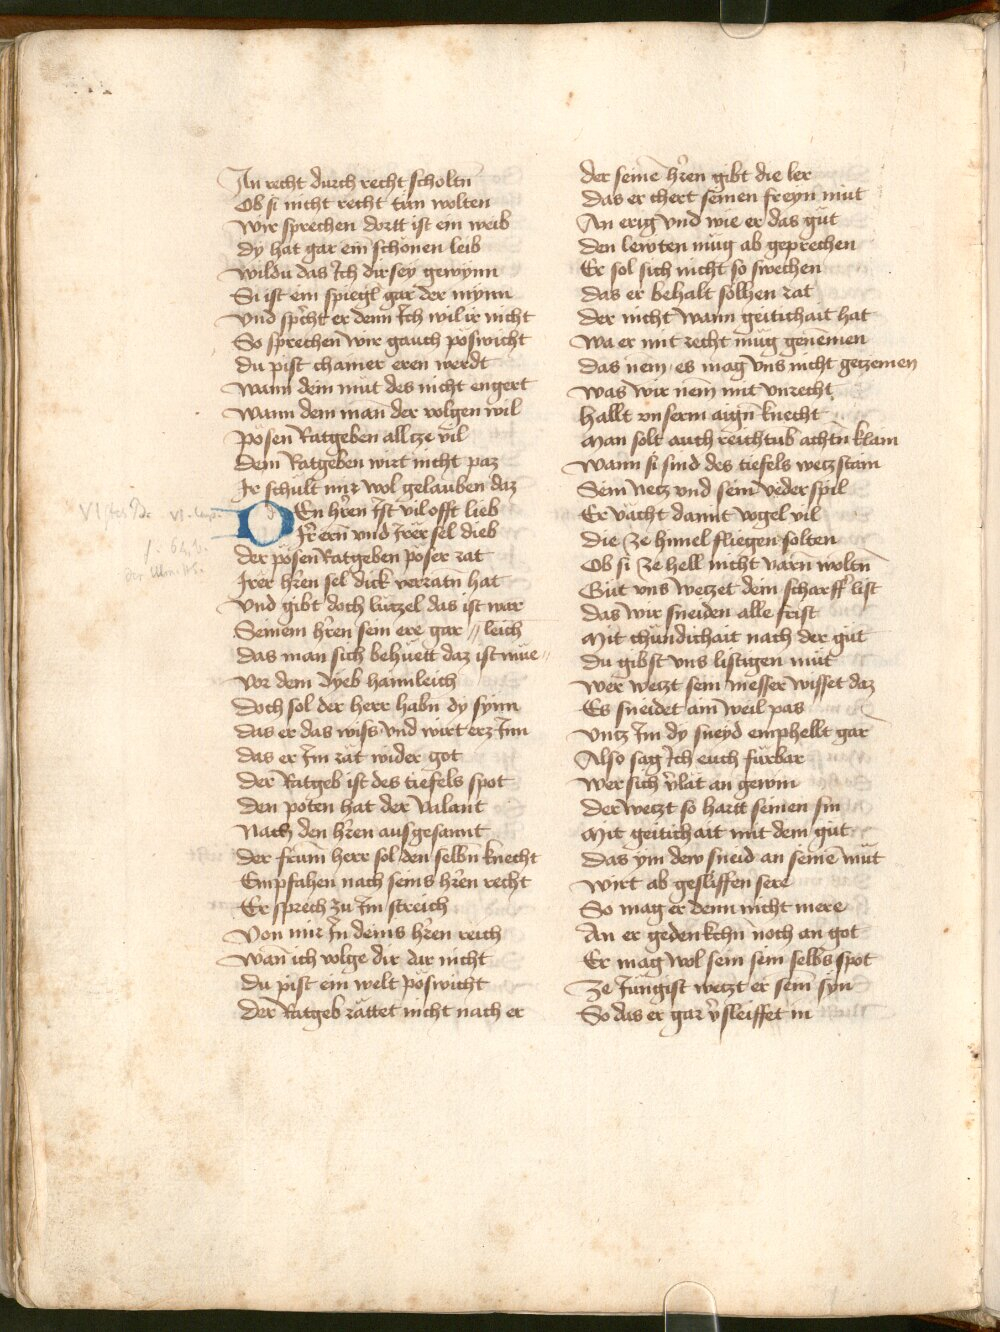 An recht durch recht scholtn
Ob si nicht recht tun wolten
Wir sprechen dortt ist ein weib
dy hat gar ein schonen leib
Wildu das Ich dir sey gewynn
Si ist ein spiegl gar der mynn
Vnd spͤcht er denn Ich wil ir nicht
So sprechen wir gauch poswicht
du pist chainer eren werdt
Wann dein mut des nicht engert
Wann dem man der volgen wil
posen Ratgeben allcze vil
Dem Ratgeben wirt nicht paz
Ir schult mir wol gelauben daz
DEn hr̄en ist vil offt lieb
Ir ern vnd Irer sel dieb
der posen Ratgeben poser rat
Irer hr̄en sel dick verratn hat
Vnd gibt doch lutzel das ist war
Seinem hr̄en sein ere gar // leich
das man sich behuett daz ist mue //
Vor dem dyeb haimleich
Doch sol der herr habn dy synn
das er das wiss vnd wirt erz Inn
das er Im rat wider got
der Ratgeb ist des tiefels spot
den poten hat der Valant
Nach den hr̄en ausgesannt
der frum herr sol den selbn knecht
Empfahen nach seins hr̄en recht
Er sprech zu Im streich
Von mir In deins hr̄en reich
Wan ich volge dir dar nicht
du pist ein welt poswicht
der Ratgeb rattet nicht nach er
der seinē hr̄en gibt die ler
das er chert seinen freyn mut
An erig vnd wie er das gut
den lewten mug ab geprechen
Er sol sich nicht so swechen
das er behalt solhen rat
der nicht wann geitichait hat
Wa er mit recht mug genemen
das nem es mag vns nicht geczemen
was wir nem mit vnrecht
hallt vnserm aign knecht
Man solt auch reichtub achtn klain
Wann si sind des tiefels weczstain
Sein netz vnd sein vederspil
Er vacht damit vogel vil
die ze himel fliegen solten
Ob si ze hell nicht varn woltn
Gut vns weczet dein scharff list
das wir sneiden alle frist
Mit chundichait nach der gut
du gibst vns listigen mut
Wer weczt sein messer wisset daz
Es sneidet ain weil pas
Vncz Im dy sneyd emphellt gar
Also sag Ich euch furbar
Wer sich v̄lat an gewin
Der weczt so hartt seinen sin
Mit geitichait mit dem gut
das ym dew sneid an seinē mut
wirt ab gesliffen sere
So mag er denn nicht mere
An er gedenkchn noch an got
Er mag wol sein sein selbs spot
Ze Iungist weczt er sein syn
So das er gar v̄sleiffet in